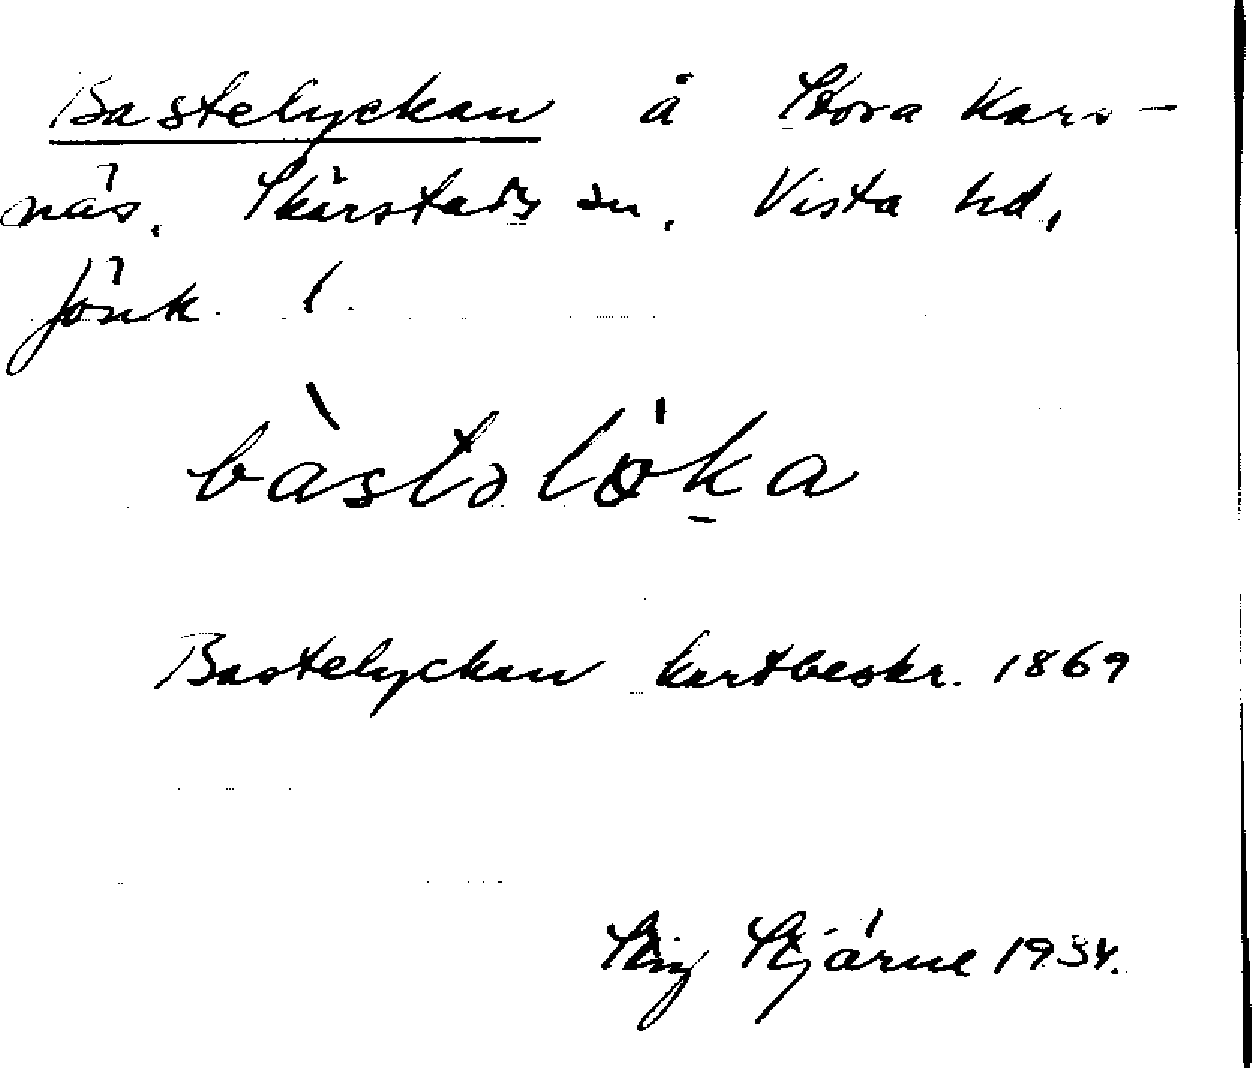 Bastelyckan å Stora Kars-
näs. Skärstads sn. Vista hd,
Jönk. l.
bàstəlöka
Bastelyckan kartbeskr. 1869
Stig Stjärne 1934.